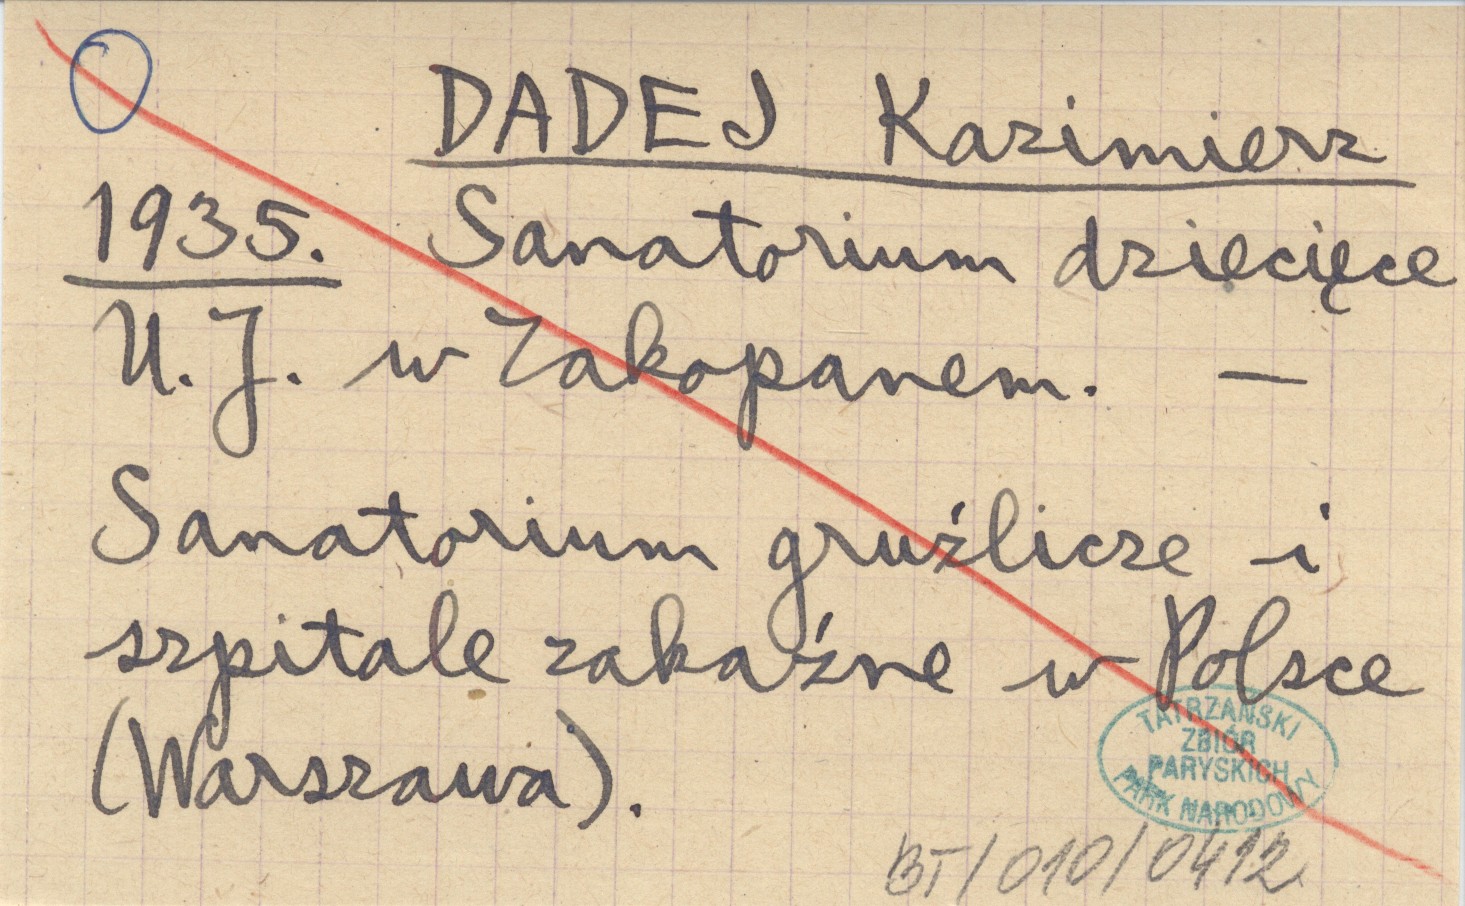 DADEJ Kazimierz
1935. Sanatorium dziecięce
U.J. w Zakopanem. —
Sanatorium gruźlicze i
szpitale zakaźne w Polsce
(Warszawa).
TATRZAŃSKI
ZBIÓR
PARYSKICH
PARK NARODOWY
BT/010/0412